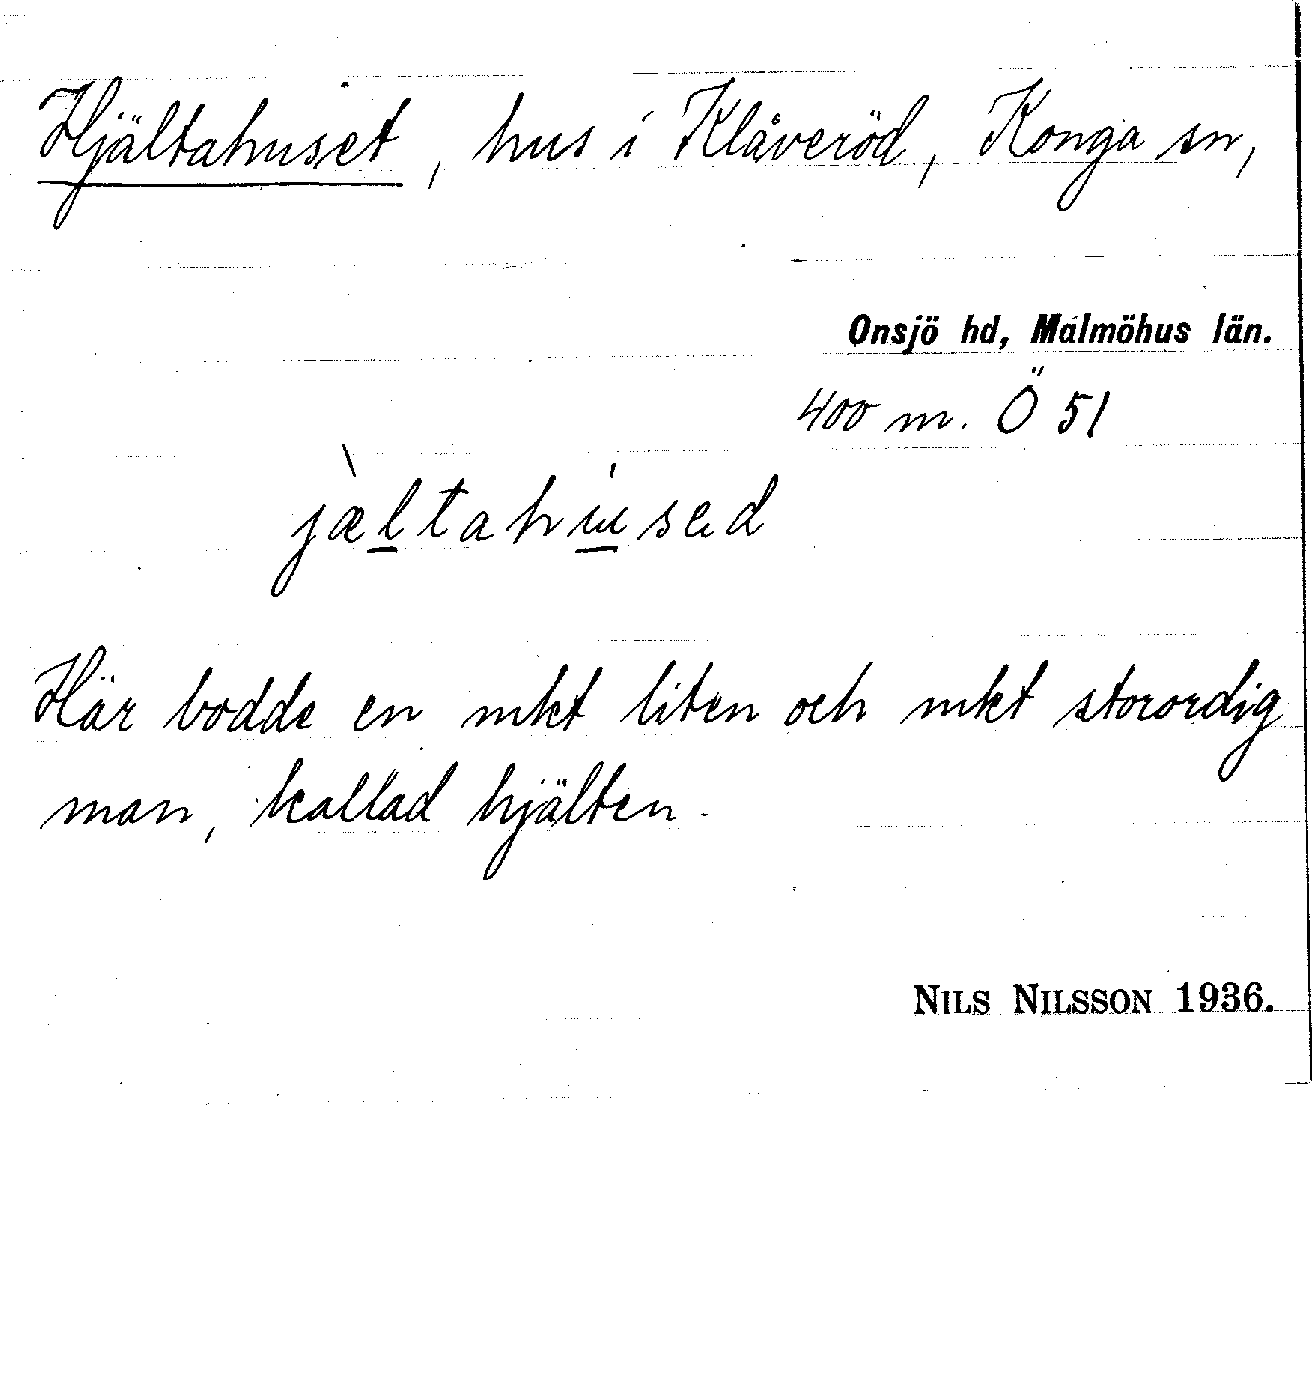 Hjältahuset, hus i Klåveröd, Konga sn,
Onsjö hd, Malmöhus län.
400 m. Ö 51
jæ̀ltahu̍sed
Här bodde en mkt liten och mkt storordig
man, kallad hjälten.
NILS NILSSON 1936.